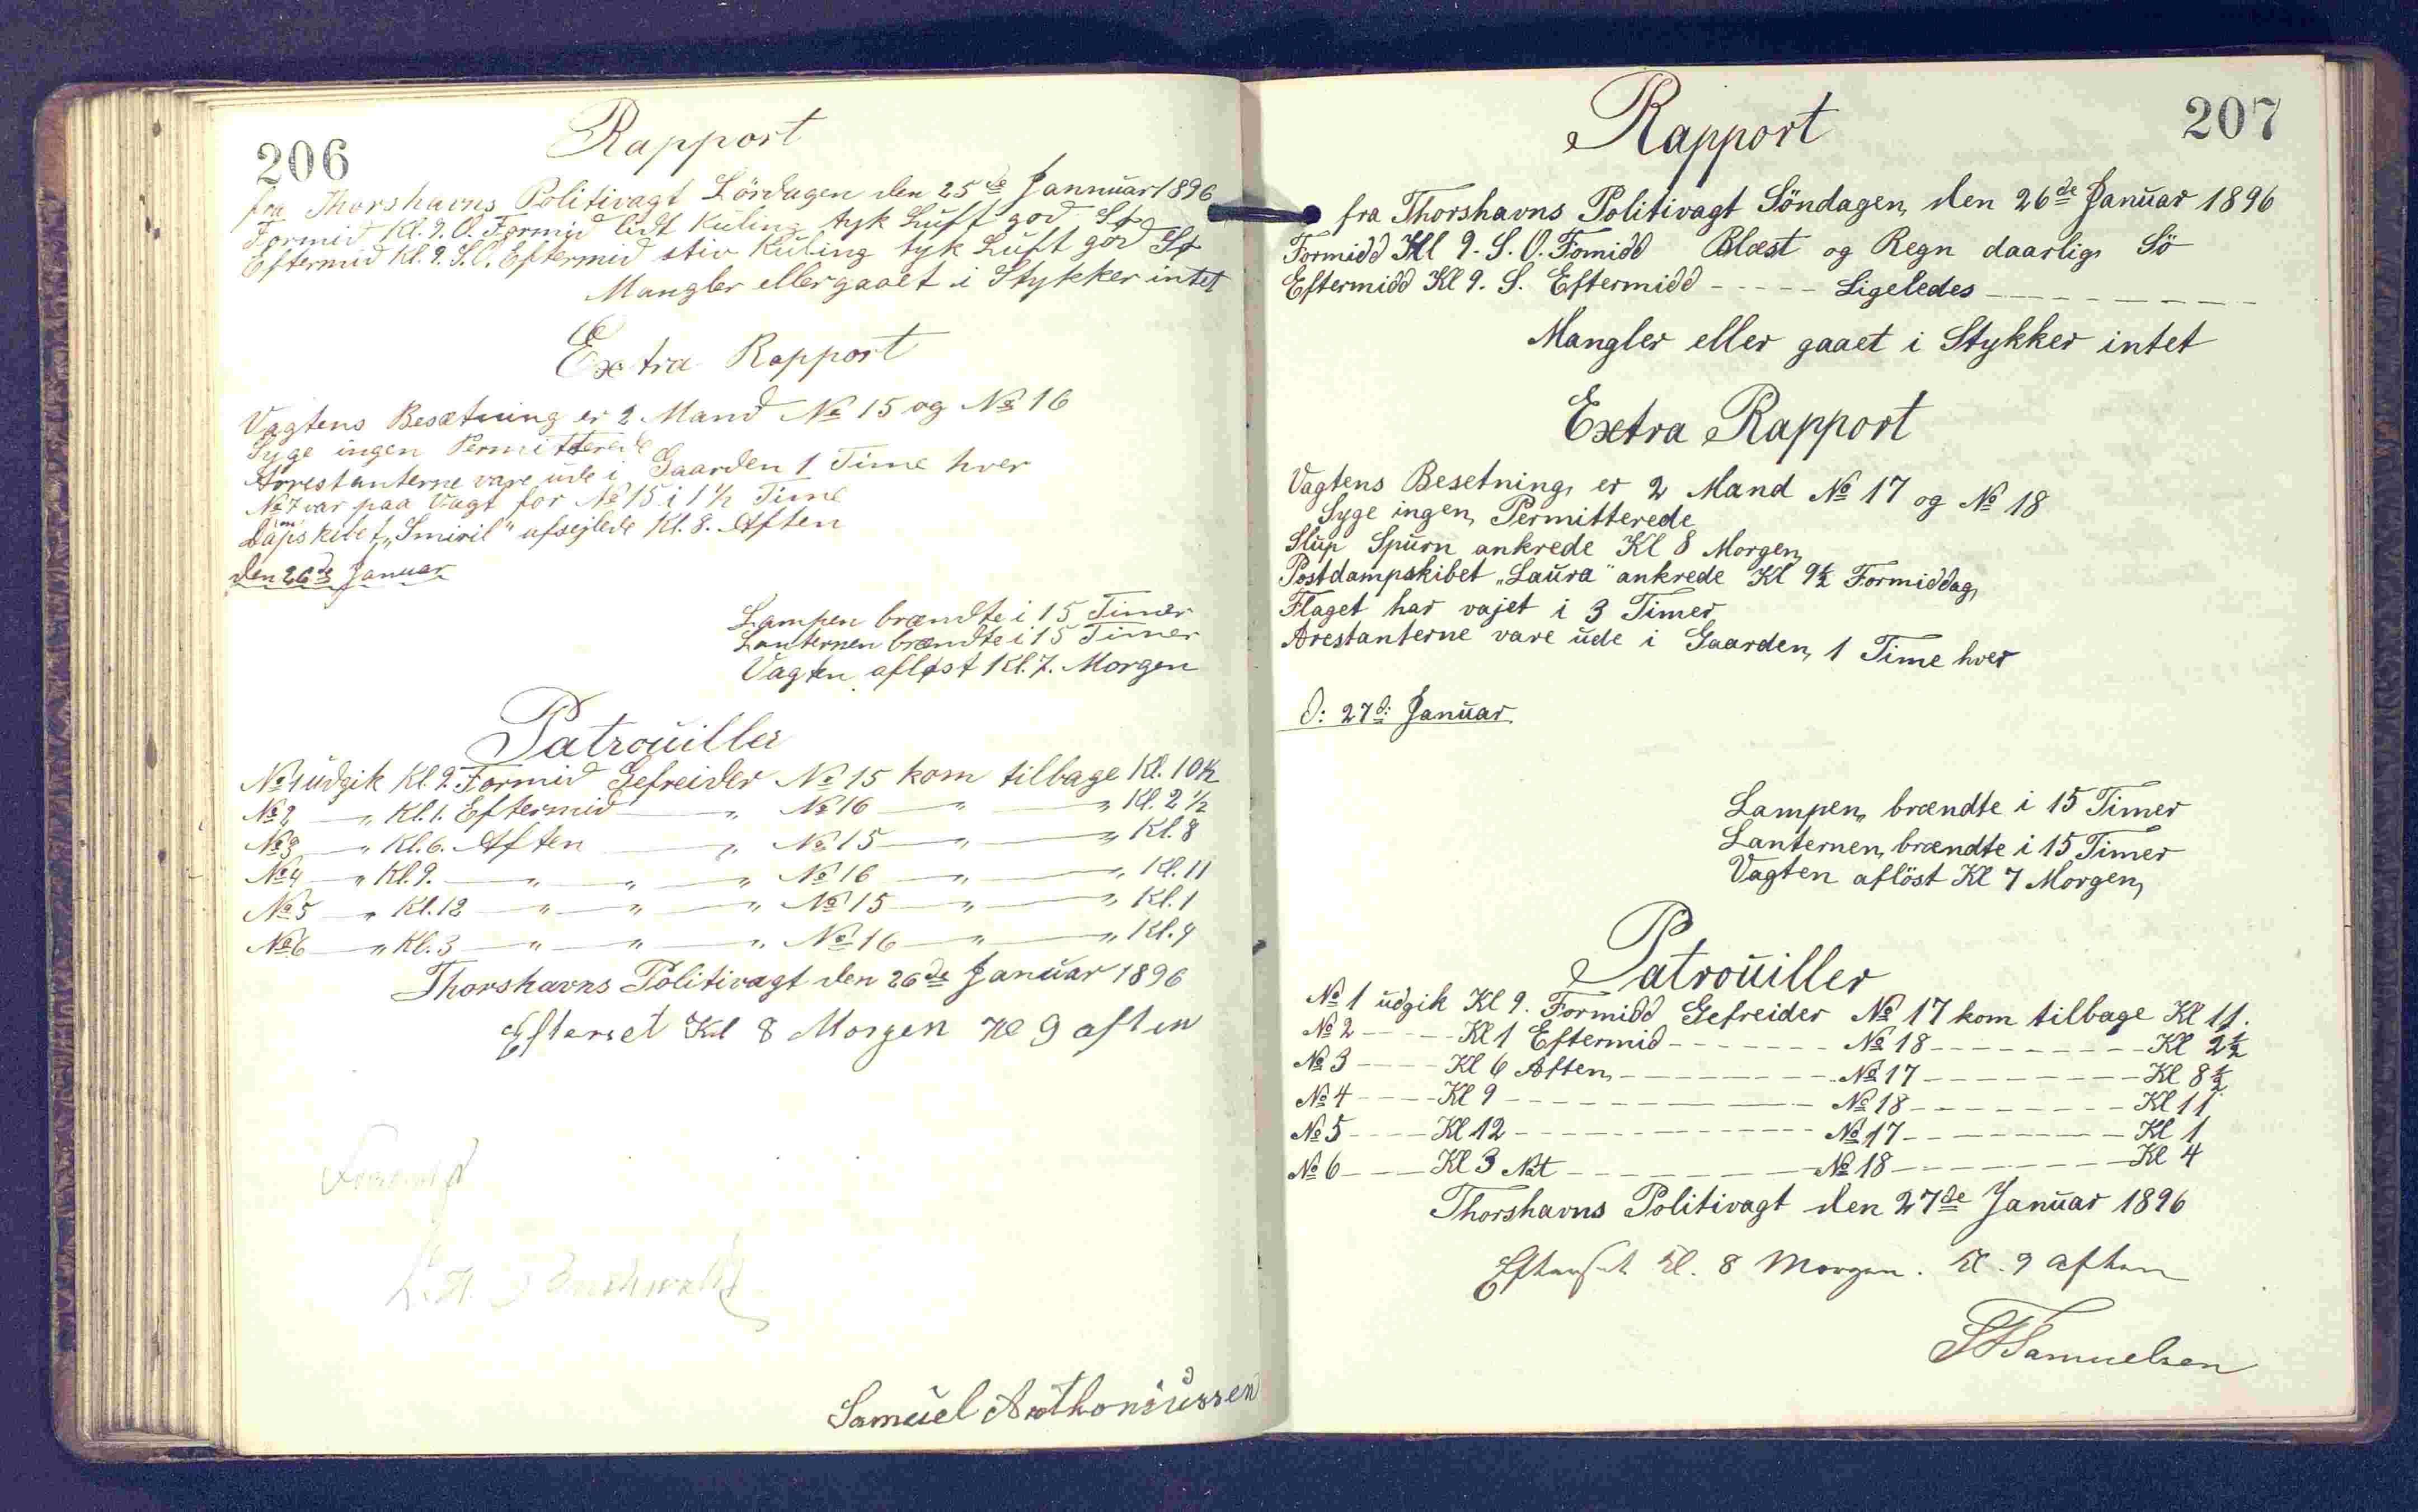 206
Rapport
fra Thorshavns Politivagt Lördagen den 25de Januar 1896
Formid Kl. 9. O. Formid lidt Kuling tyk Luft god Sø
Eftermid Kl. 9. S.O. Eftermid stiv Kuling tyk Luft god Sø
Mangler eller gaaet i Stykker intet
Extra Rapport
Vagtens Besætning er 2 Mand № 15 og № 16
Syge ingen Permitterede
Arrestanterne vare ude i Gaarden 1 Time hver
№ 7 var paa Vagt for № 15 i 1 1/2 Time
Dampskibet „Smiril" afsejlede Kl. 8. Aften
den 26de Januar
Lampen brændte i 15 Timer
Lanternen brændte i 15 Timer
Vagten afløst Kl. 7. Morgen
Patrouiller
№ 1 udgik Kl. 9. Formid Gefreider № 15 kom tilbage Kl. 10½
№ 2 — „ Kl. 1. Eftermid — „ № 16 — „ — „ Kl. 2 1/2
№ 3 — „ Kl. 6. Aften — „ № 15 — „ — „ Kl. 8
№ 4 — „ Kl. 9. — „ — „ — „ № 16 — „ — „ Kl. 11
№ 5 — „ Kl. 12 — „ — „ — „ № 15 — „ — „ Kl. 1
№ 6 — „ Kl. 3 — „ — „ — „ № 16 — „ — „ Kl. 4
Thorshavns Politivagt den 26de Januar 1896
Efterset Kl 8 Morgen Kl 9 aften
Samuel Anthoniussen
207
Rapport
fra Thorshavns Politivagt Söndagen den 26de Januar 1896
Formidd Kl 9. S. O. Fomidd Blæst og Regn daarlig Sö
Eftermidd Kl 9. S. Eftermidd - - - - - Ligeledes - - - - - - - -
Mangler eller gaaet i Stykker intet
Extra Rapport
Vagtens Besetning er 2 Mand № 17 og № 18
Syge ingen Permitterede
Slup Spurn ankrede Kl 8 Morgen
Postdampskibet „Laura" ankrede Kl 9½ Formiddag
Flaget har vajet i 3 Timer
Arestanterne vare ude i Gaarden 1 Time hver
d: 27d: Januar
Lampen brændte i 15 Timer
Lanternen brændte i 15 Timer
Vagten aflöst Kl 7 Morgen
Patrouiller
№ 1 udgik Kl 9. Formidd Gefreider № 17 kom tilbage Kl 11.
№ 2 - - - - - Kl 1 Eftermid - - - - - - - № 18 - - - - - - - - - Kl 2½
№ 3 - - - - Kl 6 Aften - - - - - - - - - № 17 - - - - - - - - - Kl 8½
№ 4 - - - - Kl 9 - - - - - - - - - - - - - № 18 - - - - - - - - - Kl 11
№ 5 - - - - Kl 12 - - - - - - - - - - - - - № 17 - - - - - - - - - Kl 1
№ 6 - - - - Kl 3 Nat - - - - - - - - - - № 18 - - - - - - - - - Kl 4
Thorshavns Politivagt den 27de Januar 1896
Efterset Kl. 8 Morgen. Kl. 9 aften
Samuelsen